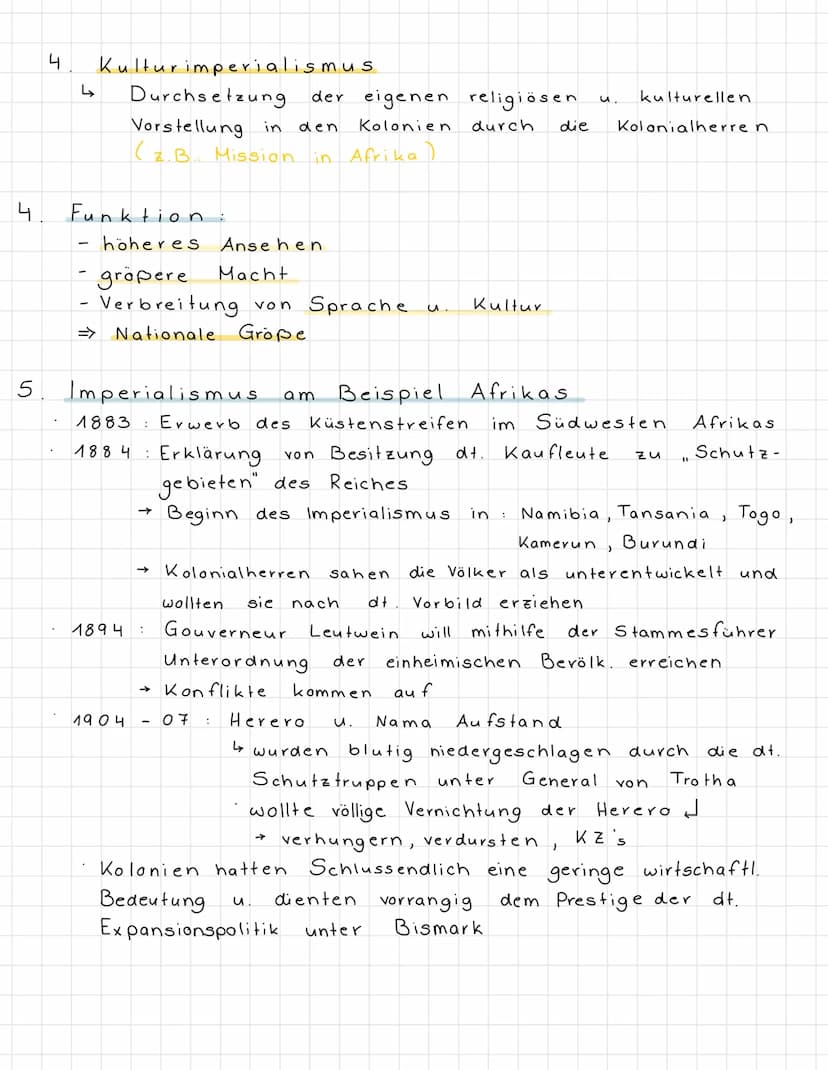 4. Kulturimperialismus
↳ Durchsetzung der eigenen religiösen u. kulturellen
Vorstellung in den Kolonien durch die Kolonialherren
(z.B. Mission in Afrika)
4. Funktion:
- höheres Ansehen
- größere Macht
- Verbreitung von Sprache u. Kultur
⇒ Nationale Größe
5. Imperialismus am Beispiel Afrikas
· 1883 : Erwerb des Küstenstreifen im Südwesten Afrikas
· 1884 : Erklärung von Besitzung dt. Kaufleute zu „Schutz-
gebieten" des Reiches
→ Beginn des Imperialismus in : Namibia, Tansania, Togo,
Kamerun, Burundi
→ Kolonialherren sahen die Völker als unterentwickelt und
wollten sie nach dt. Vorbild erziehen
· 1894 : Gouverneur Leutwein will mithilfe der Stammesführer
Unterordnung der einheimischen Bevölk. erreichen
→ Konflikte kommen auf
· 1904 - 07 : Herero u. Nama Aufstand
↳ wurden blutig niedergeschlagen durch die dt.
Schutztruppen unter General von Trotha
· wollte völlige Vernichtung der Herero ↲
→ verhungern, verdursten, KZ's
· Kolonien hatten Schlussendlich eine geringe wirtschaftl.
Bedeutung u. dienten vorrangig dem Prestige der dt.
Expansionspolitik unter Bismark